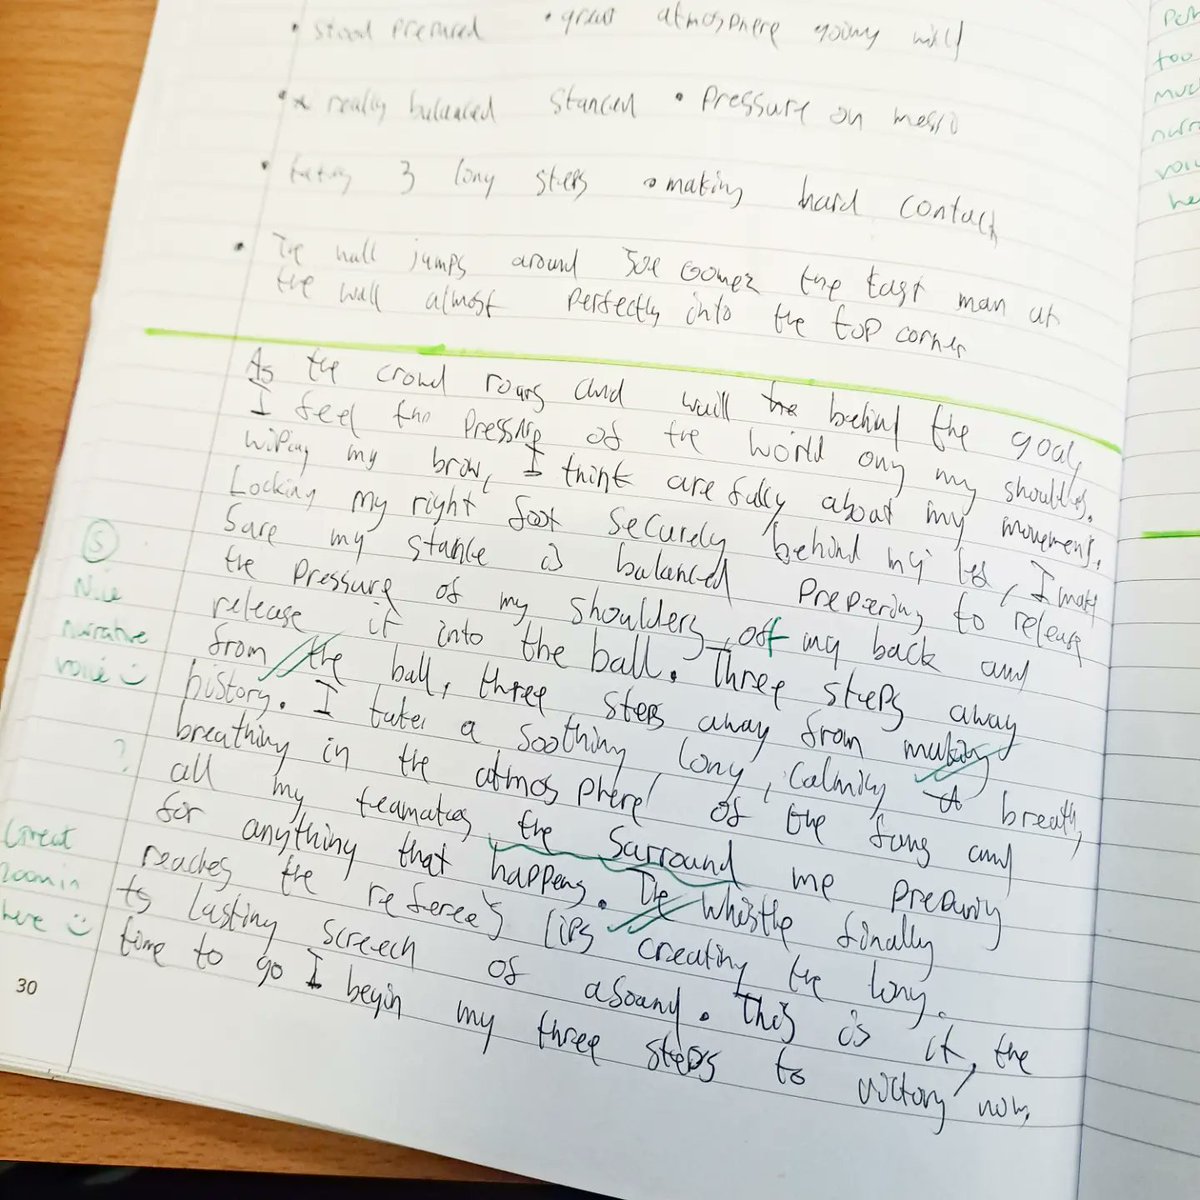 • stood prepared • great atmosphere going wild
• really balanced stanced • Pressure on messi
• taking 3 long steps • making hard contact
• The wall jumps around Joe Gomez the last man at
the wall almost perfectly into the top corner
As the crowd roars and wail the behind the goal,
I feel the pressure of the world ony my shoulders.
wiping my brow, I think carefully about my movement.
Locking my right foot securely behind my led, I make
Sure my stance is balanced preparing to release
the pressure of my shoulders, off my back and
release it into the ball. Three steps away
from the ball, three steps away from making
history. I take a soothing, long, calming breath,
breathing in the atmosphere of the fans and
all my teamates the surround me preparing
for anything that happens. The whistle finally
reaches the referee's lips creating the long.
to lasting screech of a sound. This is it, the
time to go I begin my three steps to victory now,
S
Nice
narrative
voice
?
Great
zoom in
here
30
too
much
voice